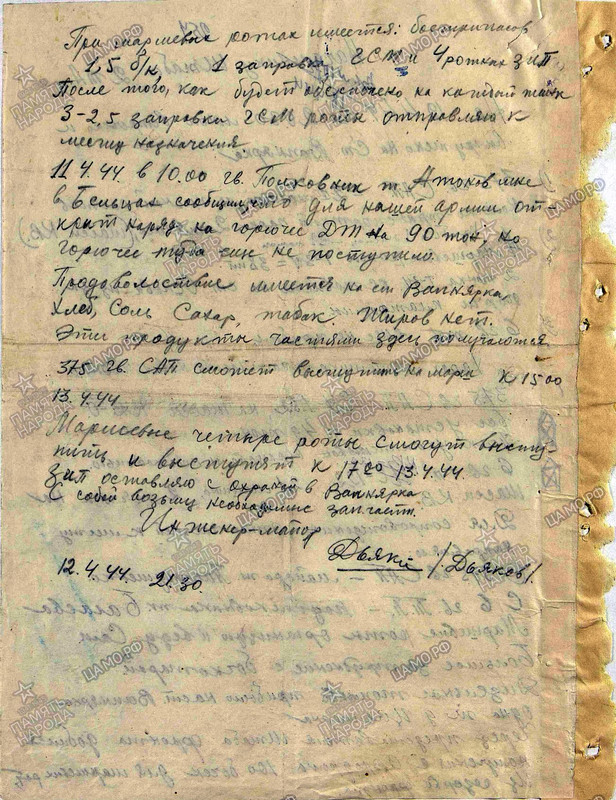 При маршевых ротах имеется: боеприпасов
1,5 б/к 1 заправка ГСМ и 4 рожках ЗИП.
После того, как будет обеспечено на каждый танк
3-2,5 заправки ГСМ роты отправляю к
месту назначения
11.4.44 в 10.00 гв. Полковник т. мне
в Бельцах сообщил, что для нашей армии от-
крыт наряд на горючее ДТ на 90 тон, но
горючее туда ещё не поступило.
Продоволствие имеется на ст. Вапнярка
Хлеб, Соль Сахар табак. Жиров нет.
Эти продукты частями здесь получаются
375 гв. САП сможет выступить на марш к 15 00
13.4.44
Маршевые четыре роты смогут высту-
пить и выступят к 17 00 13.4.44.
ЗИП оставляю с охраной в Вапнярка
С собой возьму необходимые запчасти.
Инженер-майор
Дьяков /Дьяков/.
12.4.44. 21.30.
ПАМЯТЬ НАРОДА
ЦАМО.РФ